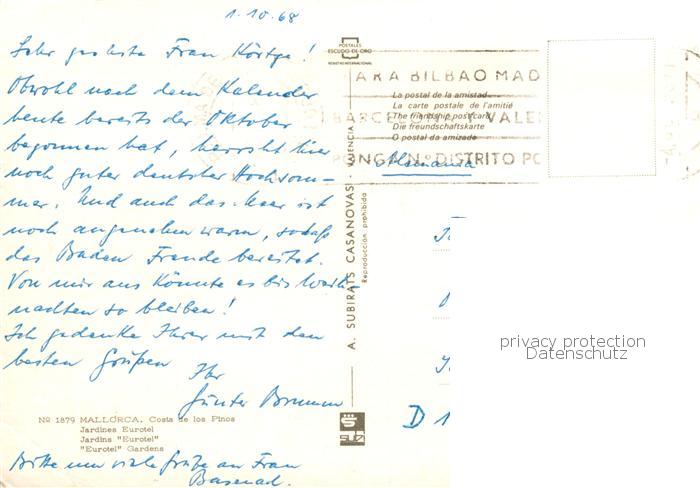 1.10.68
Sehr geehrte Frau Körtge!
Obwohl nach dem Kalender
heute bereits der Oktober
begonnen hat, herrscht hier
noch guter deutscher Hochsom-
mer. Und auch das Meer ist
noch angenehm warm, sodaß
das Baden Freude bereitet.
Von mir aus könnte es bis Weih-
nachten so bleiben!
Ich gedenke Ihrer mit den
besten Grüßen
Ihr
Günter
Nº 1879 MALLORCA. Costa de los Pinos
Jardines Eurotel
Jardins "Eurotel"
"Eurotel" Gardens
Bitte um viele Grüße an Frau
POSTALES
ESCUDO DE ORO
REGISTRO INTERNACIONAL
ARA BILBAO MAD
BARCELONA Y VALEN
PONGA Nº DISTRITO PO
La postal de la amistad
La carte postale de l'amitié
The friendship postcard
Die freundschaftskarte
O postal da amizade
Alemania
A. SUBIRATS CASANOVAS - VALENCIA
Reproducción prohibida
D 1
privacy protection
Datenschutz